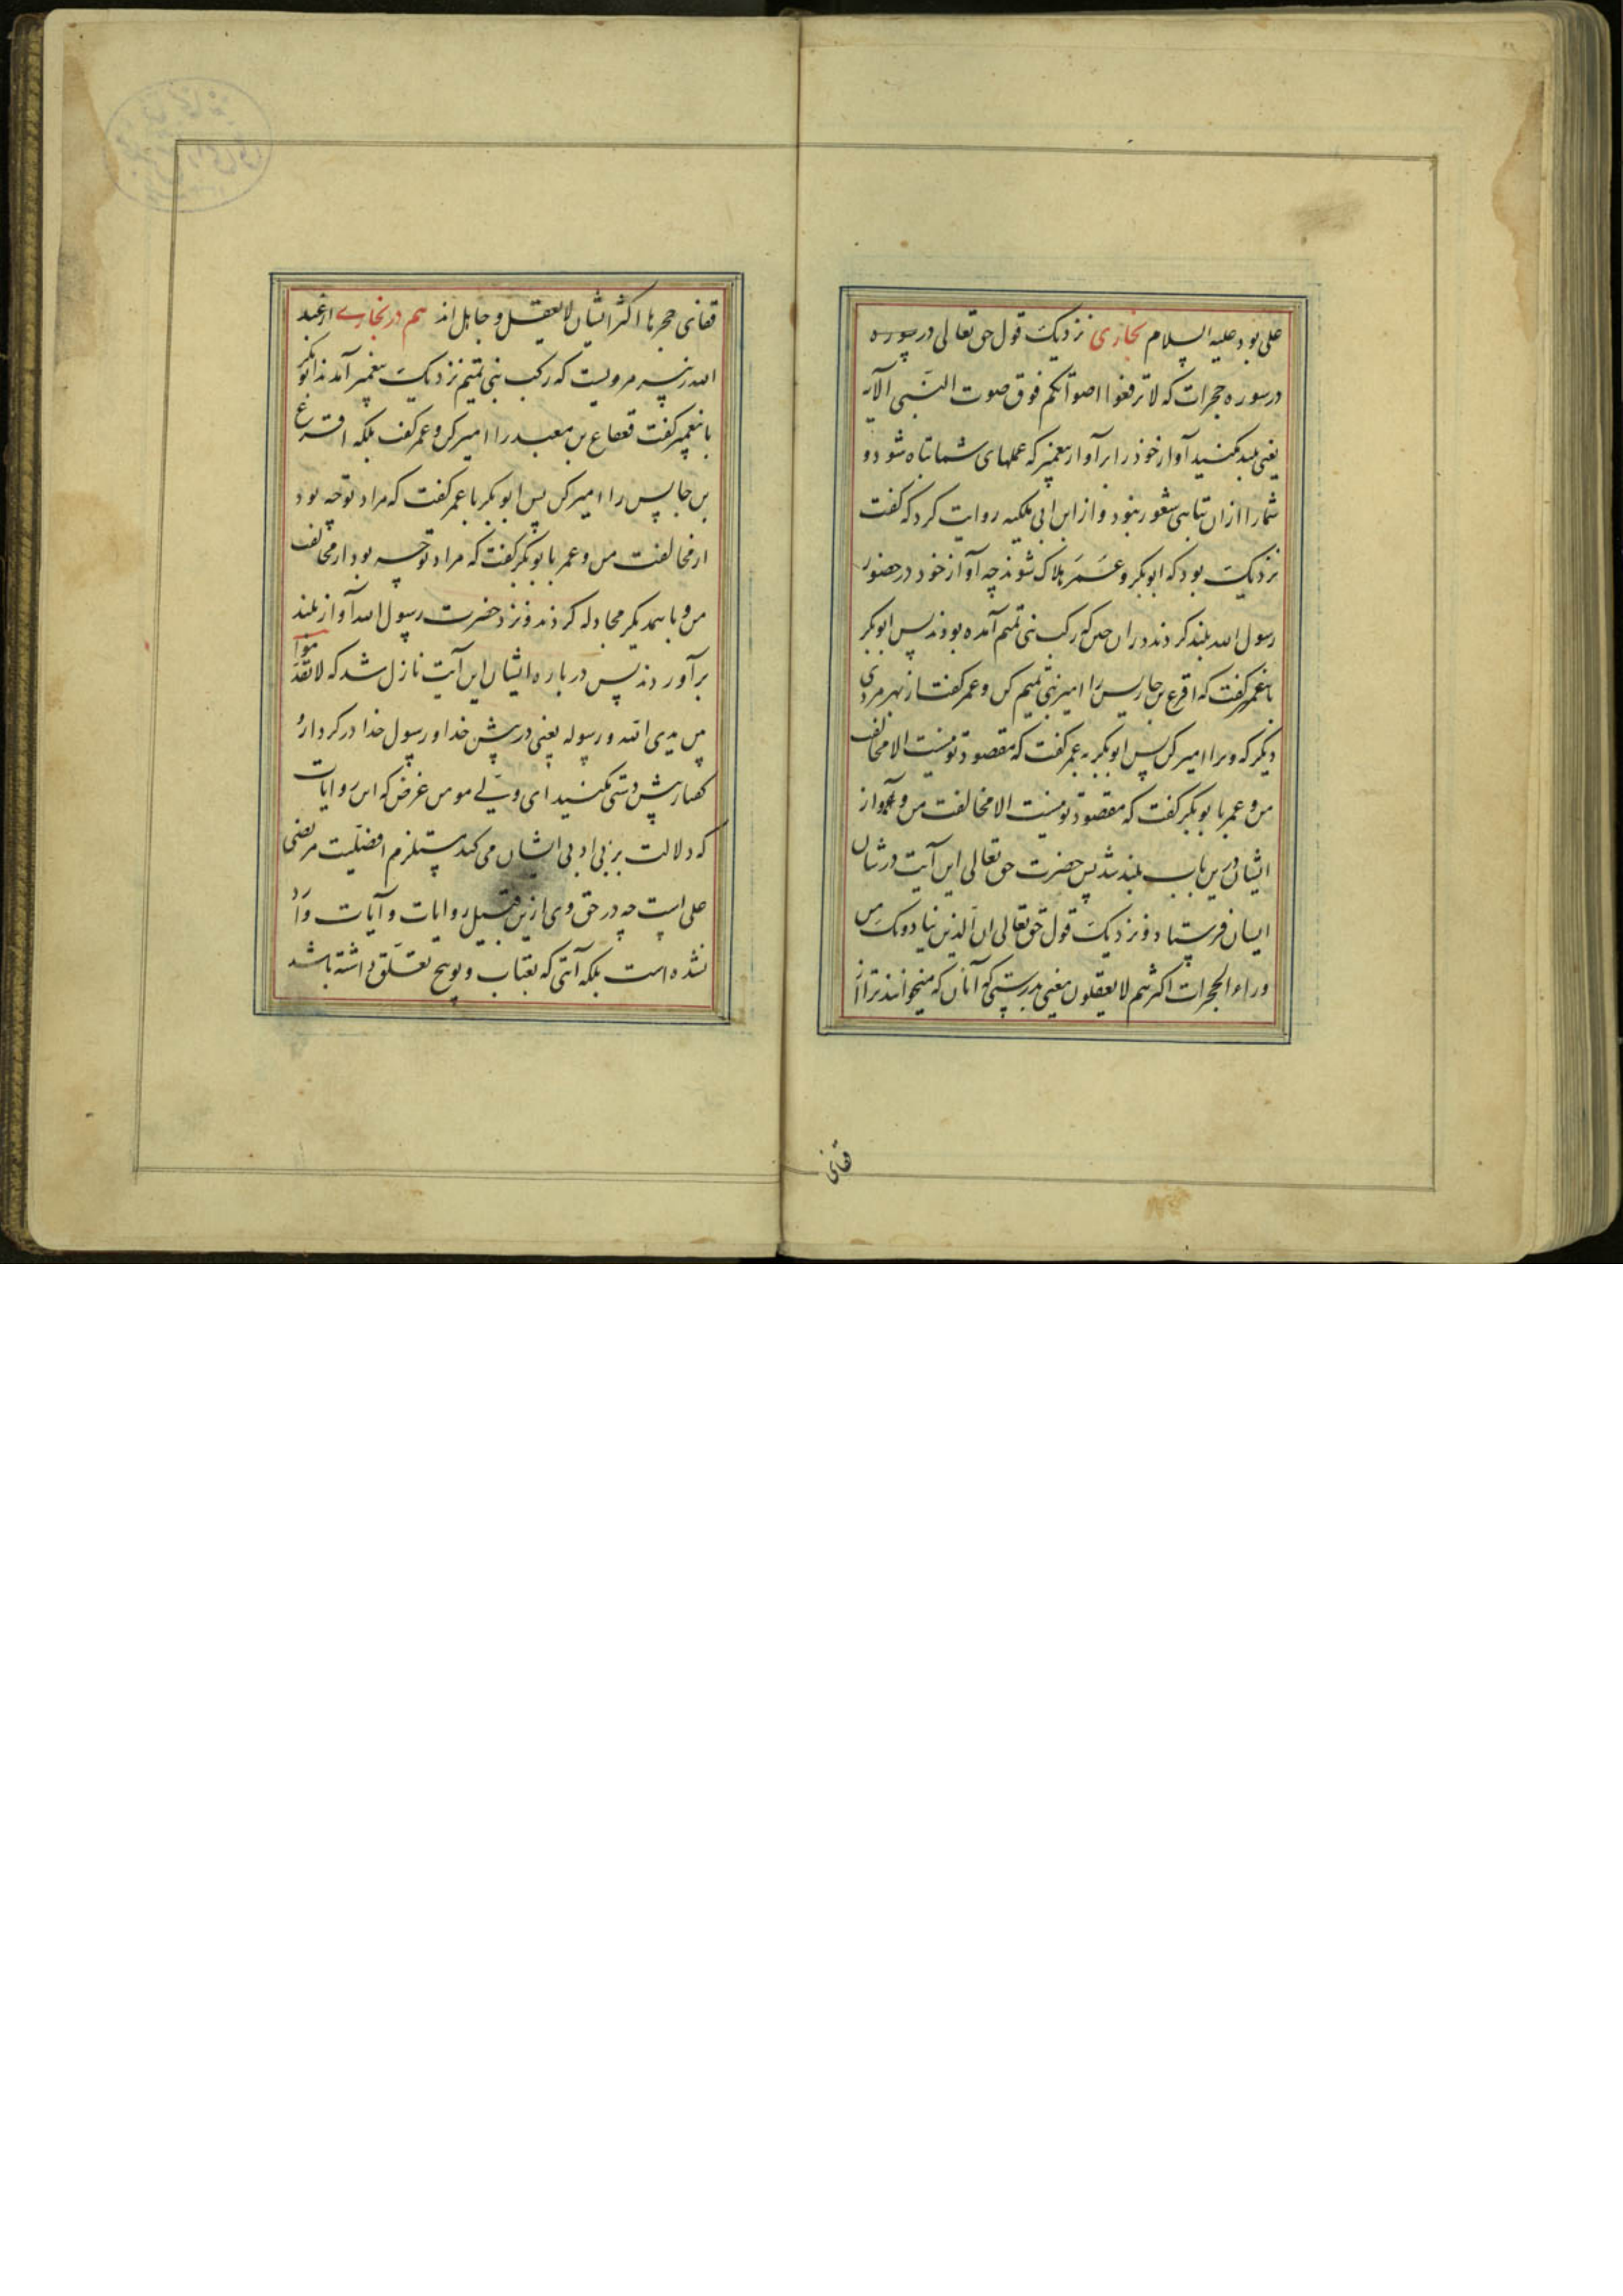 علی بود علیه السلام بخاری نزدیک قول حق تعالی در سوره
در سوره حجرات که لا ترفعوا اصواتکم فوق صوت النبی الآیه
یعنی بلند مکنید آواز خود را بر آواز پیغمبر که عملهای شما تباه شود و
شما را ازان تباهی شعور نبود و از ابن ابی ملیکه روایت کرد که گفت
نزدیک بود که ابوبکر و عمر هلاک شوند چه آواز خود در حضور
رسول الله بلند کردند دران حین که رکب بنی تمیم آمده بودند پس ابوبکر
با عمر گفت که اقرع بن حابس را امیر بنی تمیم کن و عمر گفت از بهر مردی
دیگر که ویرا امیر کن پس ابوبکر به عمر گفت که مقصود تو نیست الا مخالفت
من و عمر با بوبکر گفت که مقصود تو نیست الا مخالفت من و آواز
ایشان درین باب بلند شد پس حضرت حق تعالی این آیت در شان
ایشان فرستاد و نزدیک قول حق تعالی ان الذین ینادونک من
وراء الحجرات اکثرهم لا یعقلون یعنی بدرستی که آنان که میخوانند ترا از
قفای
قفای حجرها اکثر ایشان لا یعقل و جاهل اند هم در بخاری از عبد
الله زبیر مرویست که رکب بنی تمیم نزدیک پیغمبر آمدند ابوبکر
با پیغمبر گفت قعقاع بن معبد را امیر کن و عمر گفت بلکه اقرع
بن حابس را امیر کن پس ابوبکر با عمر گفت که مراد تو چه بود
از مخالفت من و عمر با بوبکر گفت که مراد تو چه بود از مخالفت
من و با همدیگر مجادله کردند و نزد حضرت رسول الله آواز بلند
برآوردند پس در باره ایشان این آیت نازل شد که لا تقدموا
بین یدی الله و رسوله یعنی در پیش خدا و رسول خدا در کردار و
گفتار پیش دستی مکنید ای ولی مومن غرض که این روایات
که دلالت بر بی ادبی ایشان می کند مستلزم افضلیت مرتضی
علی است چه در حق وی ازین قبیل روایات و آیات وارد
نشده است بلکه آیتی که بعتاب و توبیخ تعلق داشته باشد